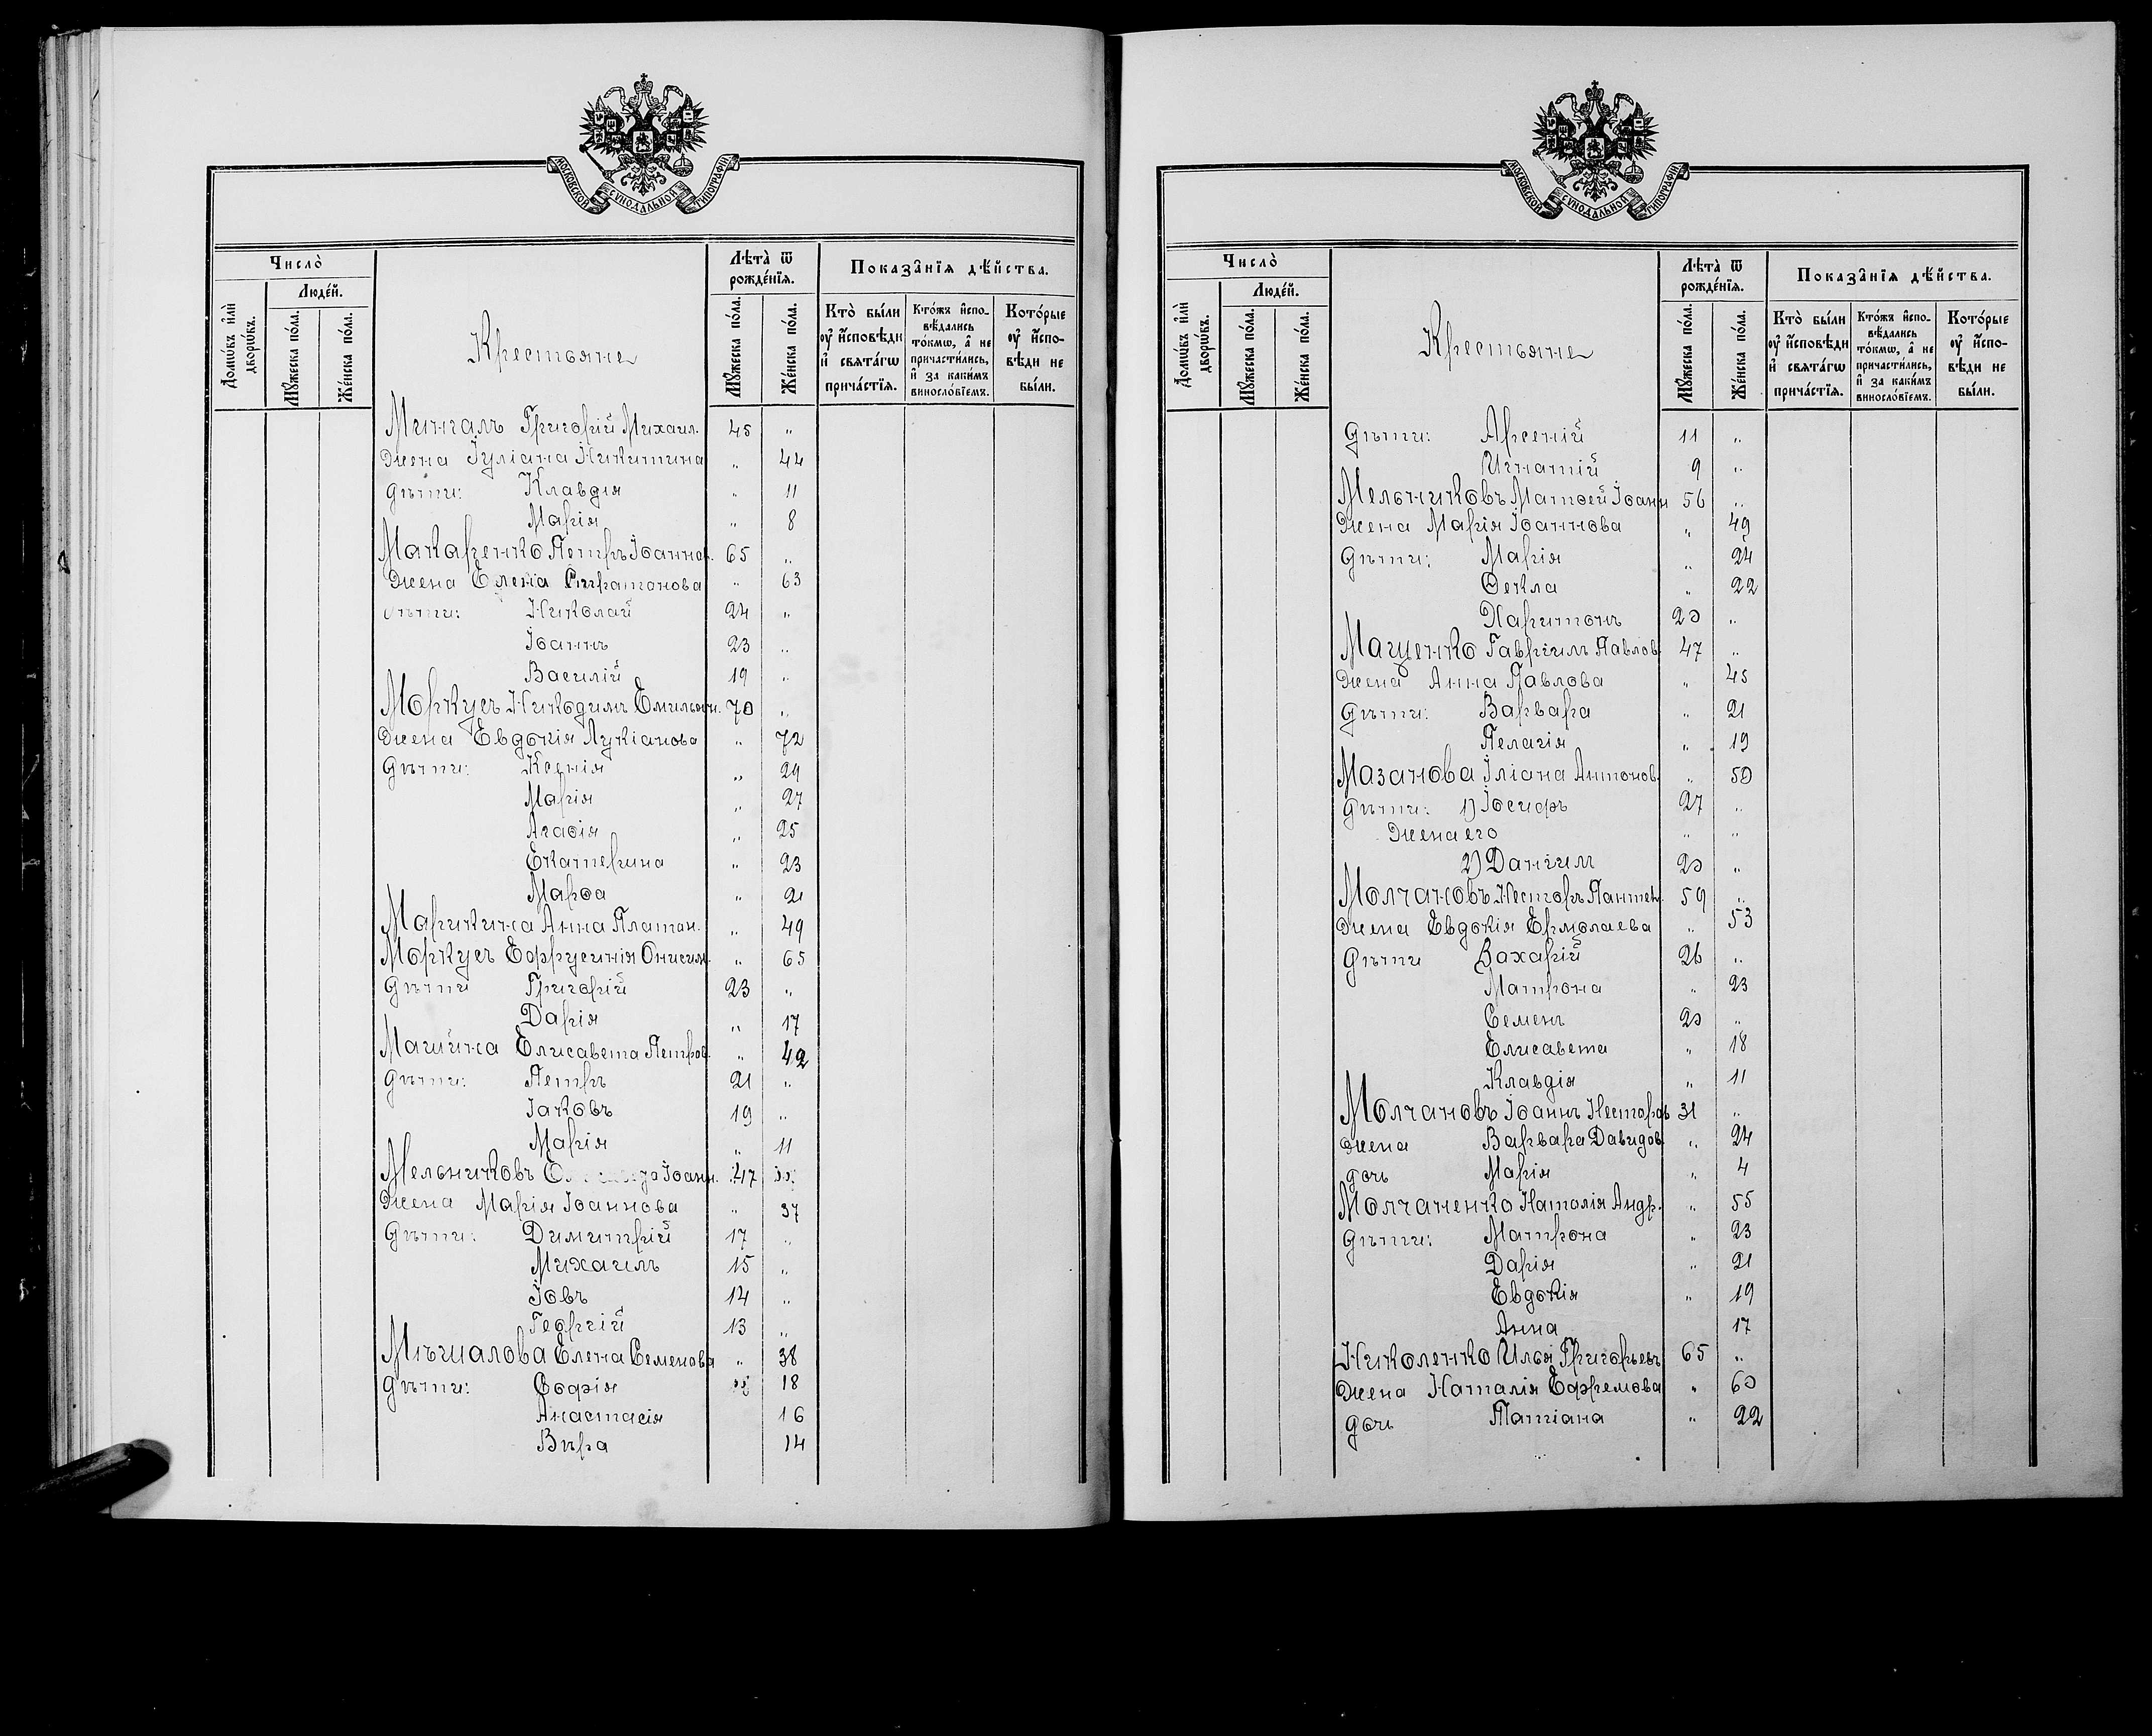 МОСКОВСКОЙ СУНОДАЛЬНОЙ ТИПОГРАФІИ
Число̀
Людéй.
Домѡ́въ и҆лѝ дворѡ́въ.
Мꙋ́жеска по́ла.
Же́нска по́ла.
Крестьяне
Лѣта̀ ѿ рожде́нїѧ.
Мꙋ́жеска по́ла.
Же́нска по́ла.
Показа̂нїѧ дѣ́йства.
Кто̀ бы́ли ᲂу҆ и҆сповѣди и҆ свѧта́гѡ прича́стїѧ.
Кто́жъ и҆спо-
вѣ́дались то́кмѡ, а҆ не причасти́лись, и҆ за каки́мъ винослові́емъ.
Кото́рые ᲂу҆ и҆спо-
вѣди не бы́ли.
Мингалъ Григорій Михаил. 45 "
Жена Іуліана Никитина " 44
Дѣти: Клавдія " 11
Марія " 8
Макаренко Петръ Іоаннов. 65 "
Жена Елена " 63
Дѣти: Николай 24 "
Іоаннъ 23 "
Василій 19 "
Моркусъ Никодимъ Емильян. 70 "
Жена Евдокія Лукіанова " 72
Дѣти: Ксенія " 29
Марія " 27
Агаѳія " 25
Екатерина " 23
Марѳа " 21
Марикина Анна Платон. " 49
Моркусъ Еѳфрусинія Онисим. " 65
Дѣти Григорій 23 "
Дарія " 17
Машина Елисавета Петров. " 42
Дѣти: Петръ 21 "
Іаковъ 19 "
Марія " 11
Мельниковъ Іоанн. 47
Жена Марія Іоаннова " 37
Дѣти: Димитрій 17 "
Михаилъ 15 "
Іовъ 14 "
Георгій 13 "
Мѣшалова Елена Семенова " 38
Дѣти: Софія " 18
Анастасія 16
Вѣра 14
МОСКОВСКОЙ СУНОДАЛЬНОЙ ТИПОГРАФІИ
Число̀
Людéй.
Домѡ́въ и҆лѝ дворѡ́въ.
Мꙋ́жеска по́ла.
Же́нска по́ла.
Крестьяне
Лѣта̀ ѿ рожде́нїѧ.
Мꙋ́жеска по́ла.
Же́нска по́ла.
Показа̂нїѧ дѣ́йства.
Кто̀ бы́ли ᲂу҆ и҆сповѣди и҆ свѧта́гѡ прича́стїѧ.
Кто́жъ и҆спо-
вѣ́дались то́кмѡ, а҆ не причасти́лись, и҆ за каки́мъ винослові́емъ.
Кото́рые ᲂу҆ и҆спо-
вѣди не бы́ли.
Дѣти: Арсеній 11 "
Игнатій 9 "
Мельниковъ Матѳей Іоанн 56 "
Жена Марія Іоаннова " 49
Дѣти: Марія " 24
Ѳекла " 22
Харитонъ 20 "
Мащенко Гавріилъ Павлов. 47 "
Жена Анна Павлова " 45
Дѣти: Варвара " 21
Пелагія " 19
Мазанова Іліана Антонов. " 50
Дѣти: 1) Іосифъ 27 "
Жена его " "
2) Даніилъ 20 "
Молчановъ Несторъ Пантел. 59 "
Жена Евдокія Ермолаева " 53
Дѣти Захарій 26 "
Матрона " 23
Семенъ 20 "
Елисавета " 18
Клавдія " 11
Молчановъ Іоаннъ Несторов 31 "
Жена Варвара Давидов. " 24
дочь Марія " 4
Молчаненко Наталія Андр. " 55
Дѣти: Матрона " 23
Дарія " 21
Евдокія " 19
Анна 17
Николенко Илья Григорьевъ 65 "
Жена Наталія Ефремова " 60
дочь Татіана " 22